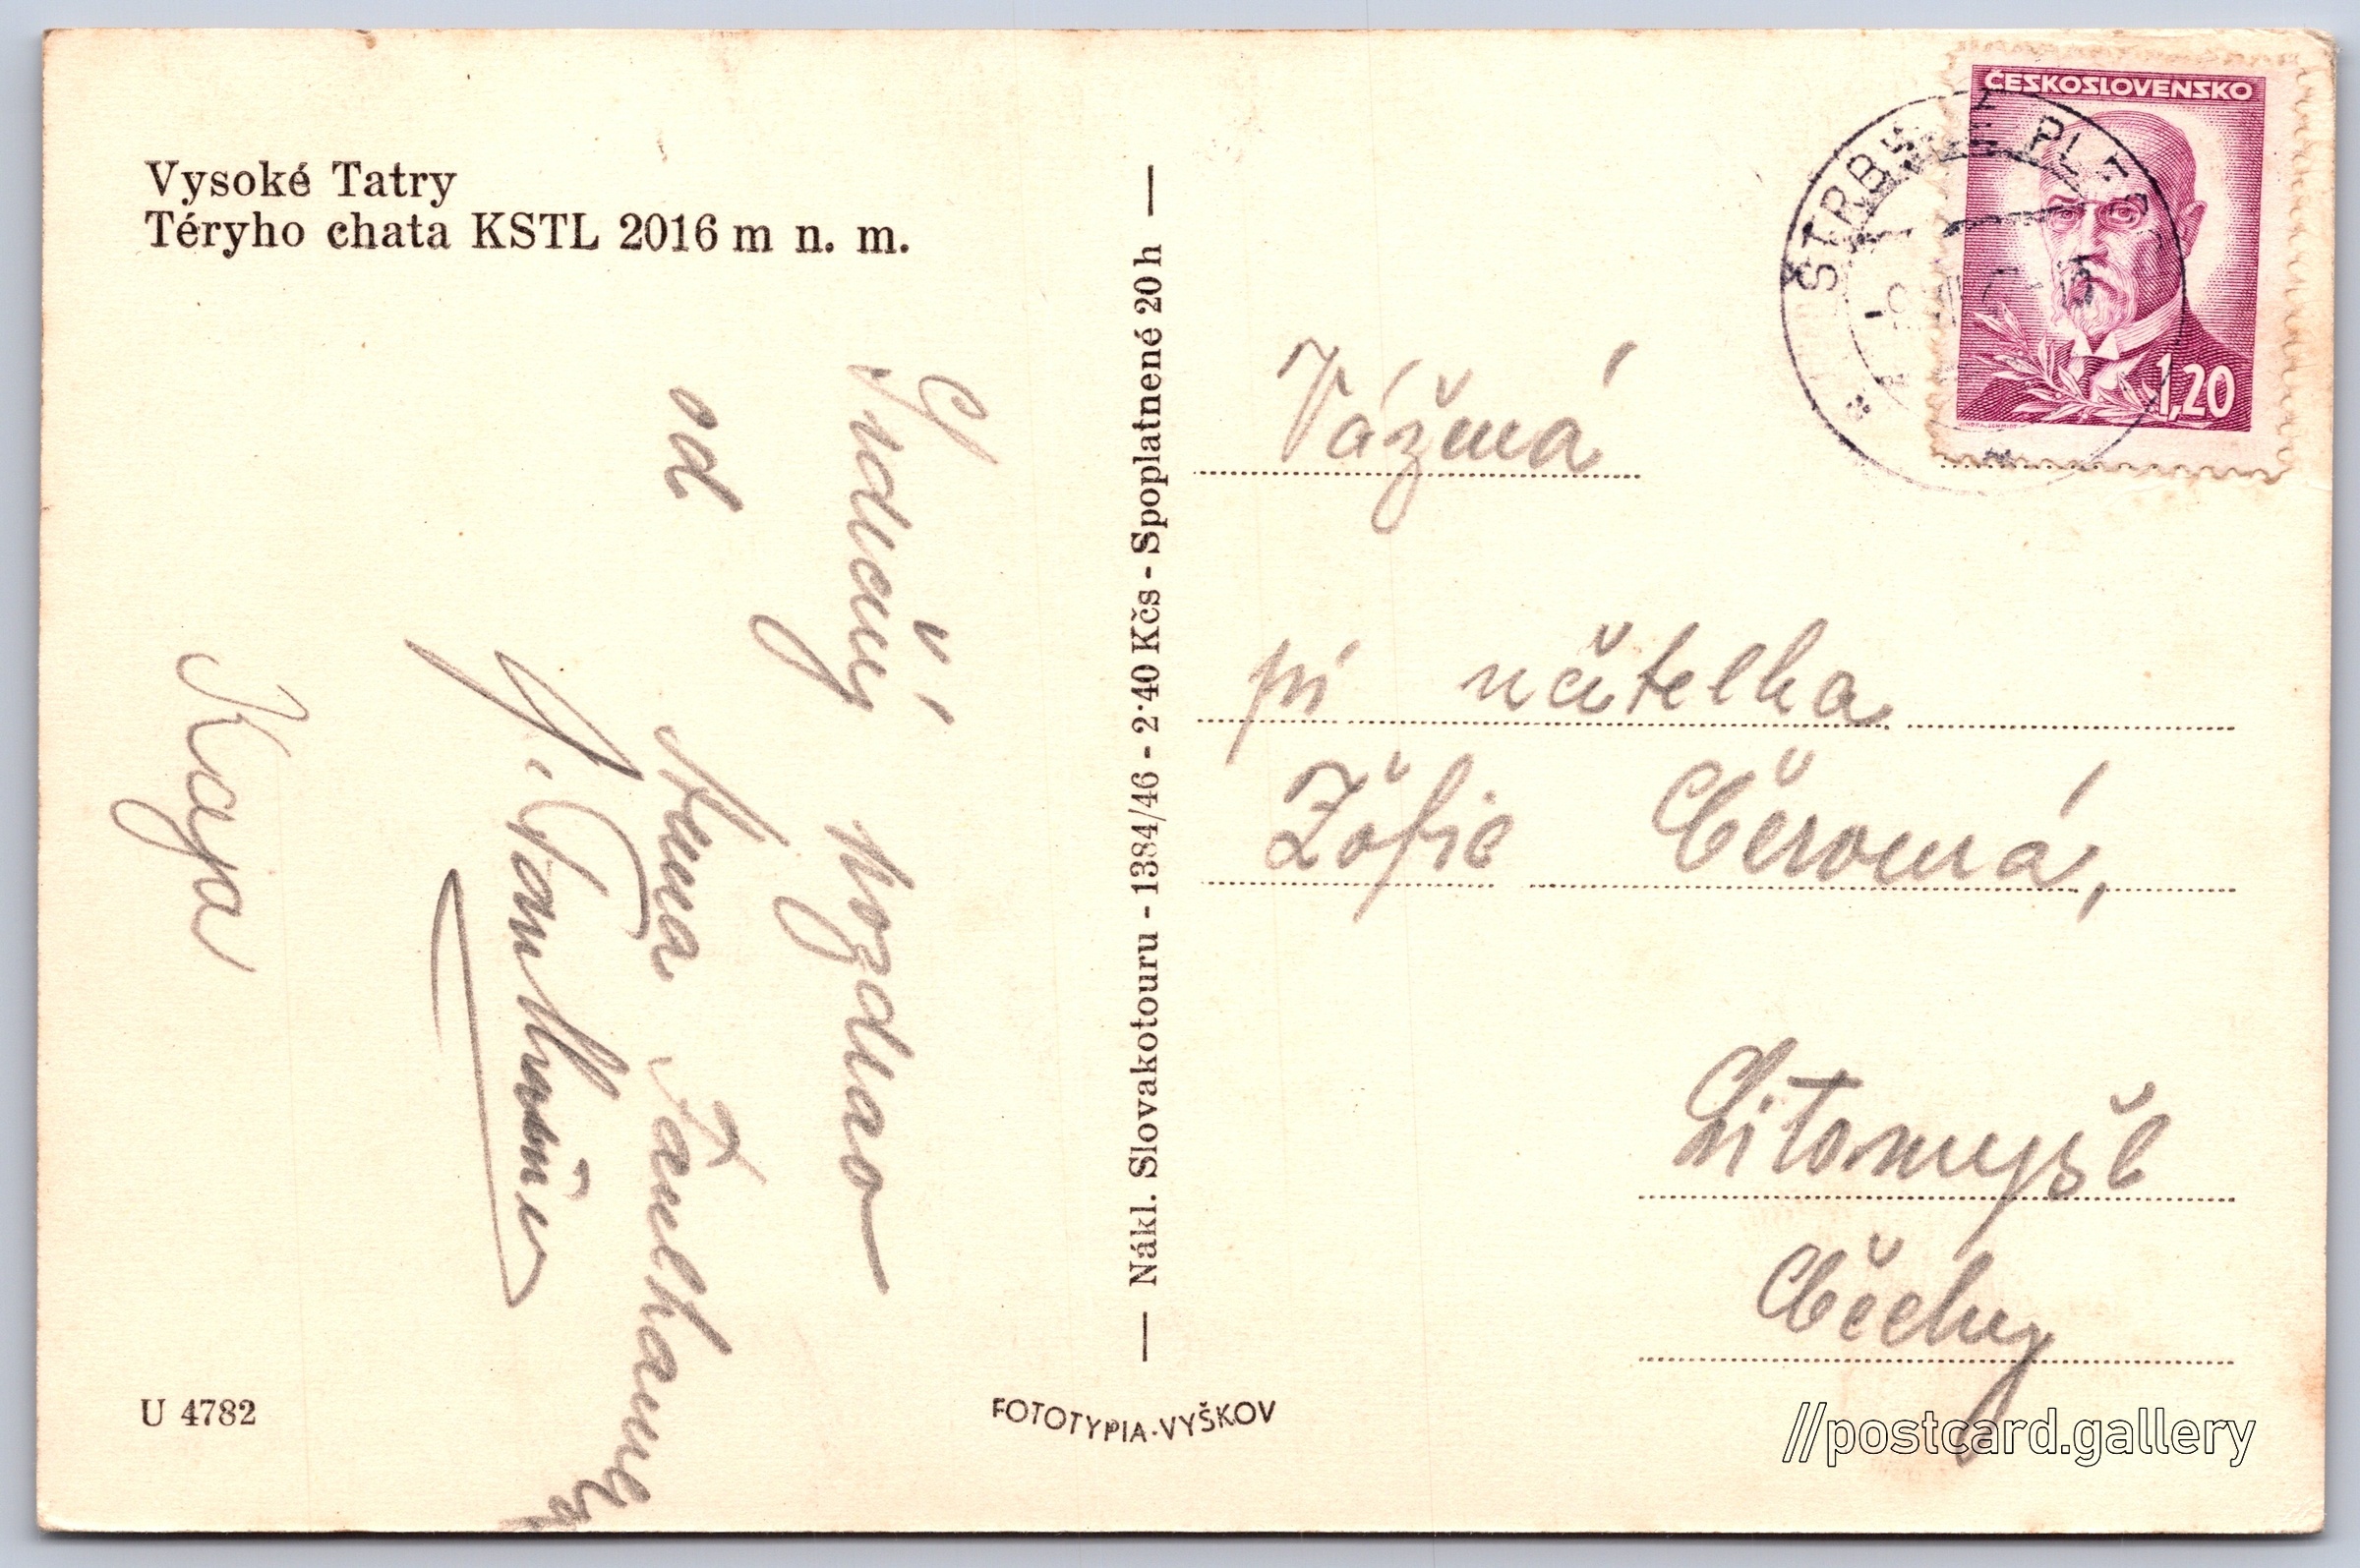 Vysoké Tatry
Téryho chata KSTL 2016 m n. m.
Srdečný pozdrav
od
Kaja
U 4782
Nákl. Slovakotouru - 1384/46 - 2·40 Kčs - Spoplatnené 20 h
FOTOTYPIA-VYŠKOV
ČESKOSLOVENSKO
1,20
ŠTRBSKÉ PLESO
Vážená
pí učitelka
Žofie Čerovná,
Litomyšl
Čechy
//postcard.gallery